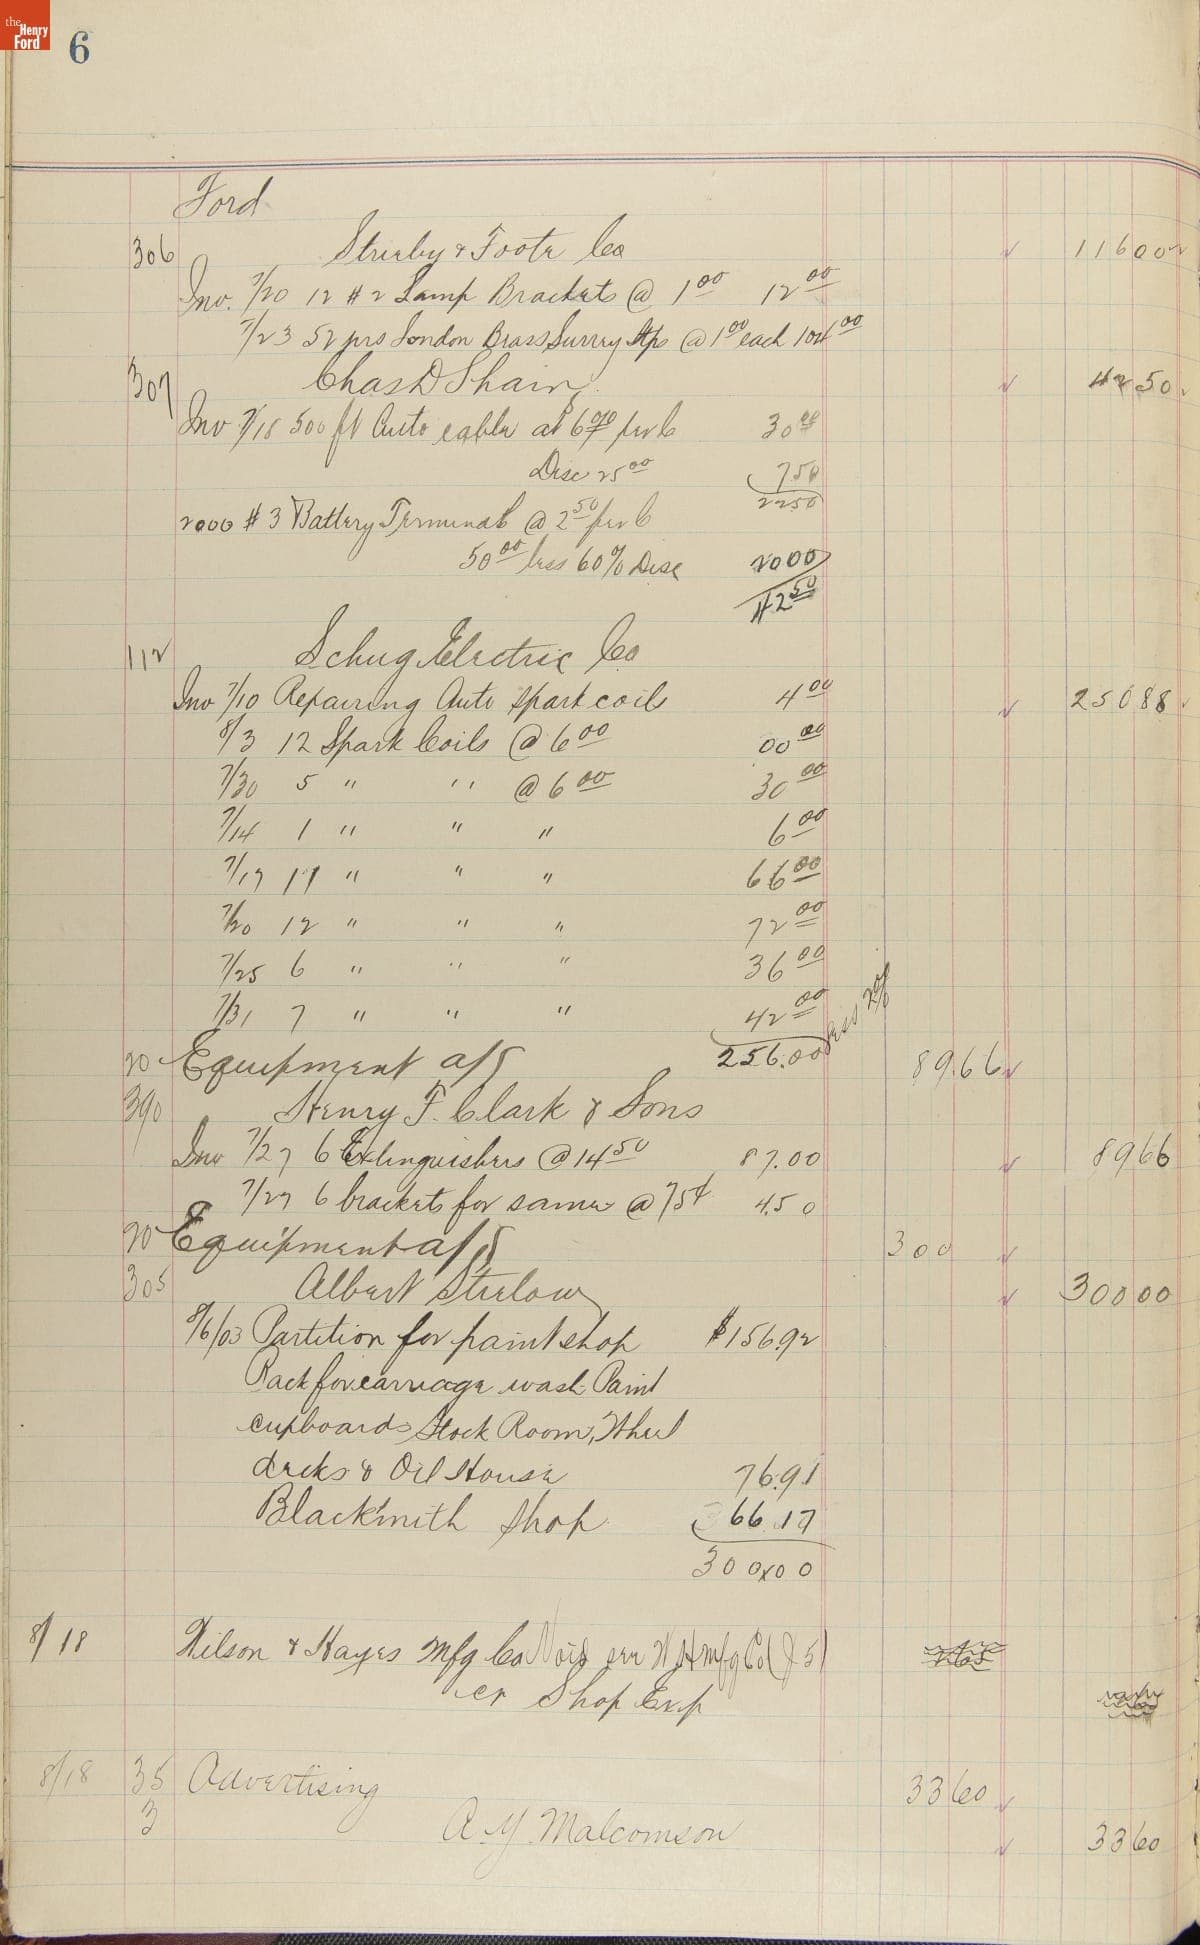 the Henry Ford
6
Ford
306 Strieby & Foote Co 116 00
Inv. 7/20 12 # 2 Lamp Brackets @ 1 00 12 00
7/23 52 prs London Brass Surrey Stps @ 1 00 each 104 00
307 Chas D Shain 42 50
Inv 7/18 500 ft Auto cable at 6 00 per C 30 00
Disc 25 00 7 50
22 50
2000 # 3 Battery Terminals @ 2 50 per C
50 00 less 60% Disc 20 00
42 50
112 Schug Electric Co
Inv 7/10 Repairing Auto spark coil 4 00 250 88
8/3 12 Spark Coils @ 6 00 00 00
7/30 5 " " @ 6 00 30 00
7/14 1 " " " 6 00
7/17 11 " " " 66 00
7/20 12 " " " 72 00
7/25 6 " " " 36 00
7/31 7 " " " 42 00
256.00 Less 2%
20 Equipment a/c 89.66
390 Henry F. Clark & Sons
Inv 7/27 6 Extinguishers @ 14 50 87.00 89 66
7/27 6 brackets for same @ 75¢ 4.50
20 Equipment a/c 300
305 Albert Strelow 300 00
8/6/03 Partition for paint shop $156.92
Rack for carriage wash Paint
cupboards Stock Room, Wheel
decks & Oil House 76.91
Blacksmith Shop 66.17
300 00
8/18 Wilson & Hayes Mfg Co Void see W H mfg Co (J 5)
cr Shop Exp
8/18 35 Advertising 33 60
3 A. Y. Malcomson 33 60